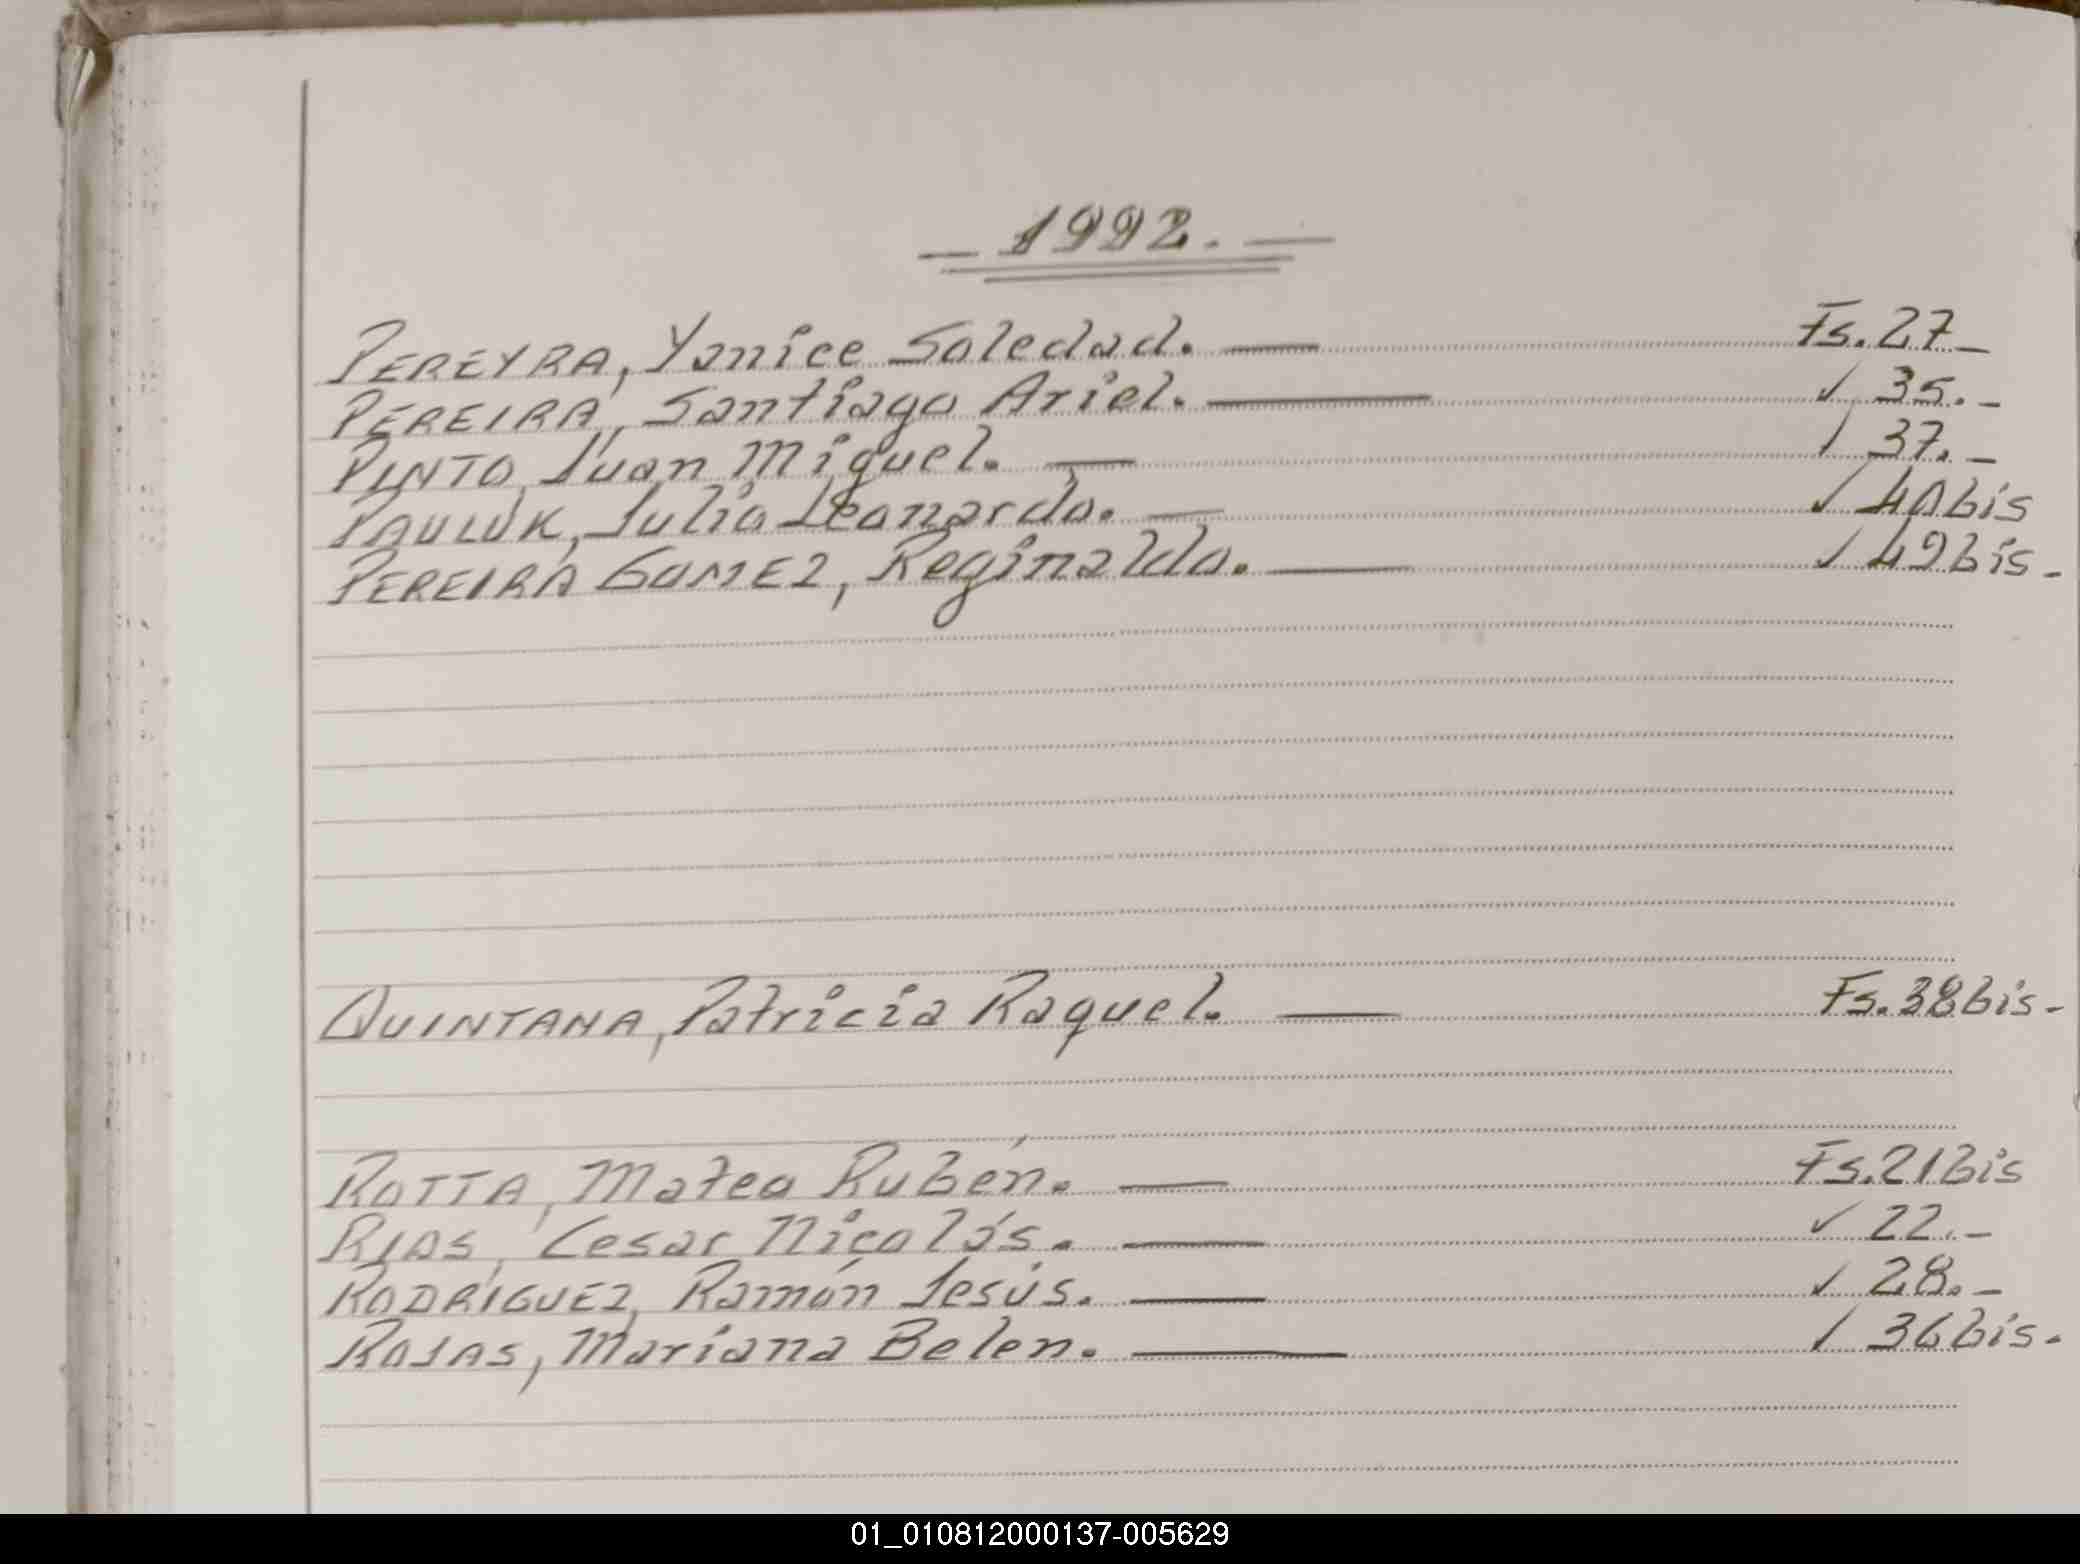 — 1992. —
PEREYRA, Yanice Soledad. — Fs. 27 —
PEREIRA, Santiago Ariel. — ✓ 35. —
PINTO, Juan Miguel. — ✓ 37. —
PAULUK, Julio Leonardo. — ✓ 40 bis
PEREIRA GOMEZ, Reginaldo. — ✓ 49 bis. -
QUINTANA, Patricia Raquel. — Fs. 38 bis. -
ROTTA, Mateo Rubén. — Fs. 21 Bis
RIOS, Cesar Nicolás. — ✓ 22. —
RODRÍGUEZ, Ramón Jesús. — ✓ 28. —
ROJAS, Mariana Belen. — ✓ 36 bis. -
01_010812000137-005629